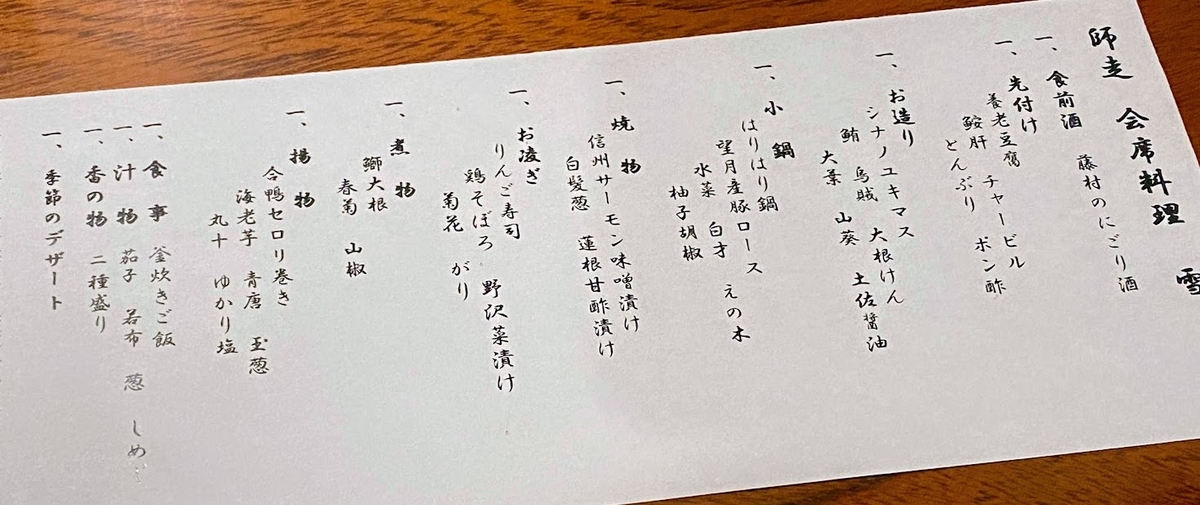 師走 会席料理 雪
一、食前酒 藤村のにごり酒
一、先付け
養老豆腐 チャービル
鮟肝 ポン酢
とんぶり
一、お造り
シナノユキマス 大根けん
鮪 烏賊 土佐醤油
大葉 山葵
一、小鍋
はりはり鍋
望月産豚ロース えの木
水菜 白才
柚子胡椒
一、焼物
信州サーモン味噌漬け
白髪葱 蓮根甘酢漬け
一、お凌ぎ
りんご寿司 野沢菜漬け
鶏そぼろ がり
菊花
一、煮物
鰤大根
春菊 山椒
一、揚物
合鴨セロリ巻き
海老芋 青唐 玉葱
丸十 ゆかり塩
一、食事 釜炊きご飯
一、汁物 茄子 若布 葱 しめ
一、香の物 二種盛り
一、季節のデザート